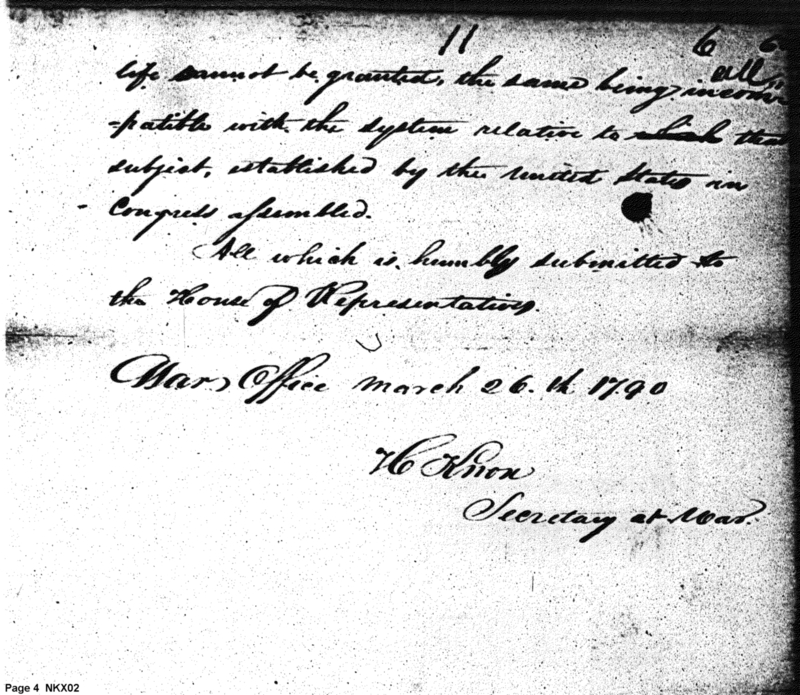 11 6
all
life cannot be granted, the same being incom-
-patible with the system relative to which that
subject, established by the United States in
Congress assembled.
All which is humbly submitted to
the House of Representatives.
War Office March 26.th 1790
H Knox
Secretary at War.
Page 4 NKX02